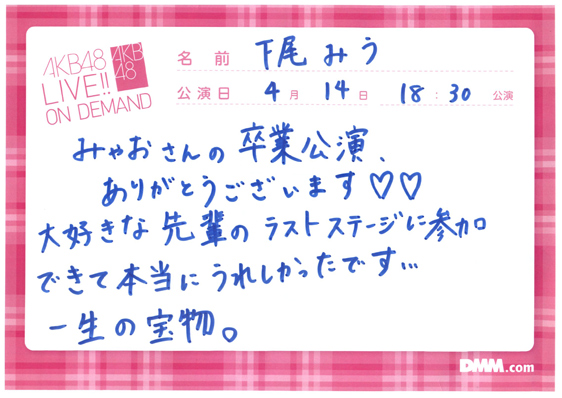 AKB48
LIVE!!
ON DEMAND
AKB
48
名前 下尾みう
公演日 4月 14日 18:30 公演
みゃおさんの卒業公演、
ありがとうございます♡♡
大好きな先輩のラストステージに参加
できて本当にうれしかったです…
一生の宝物。
DMM.com